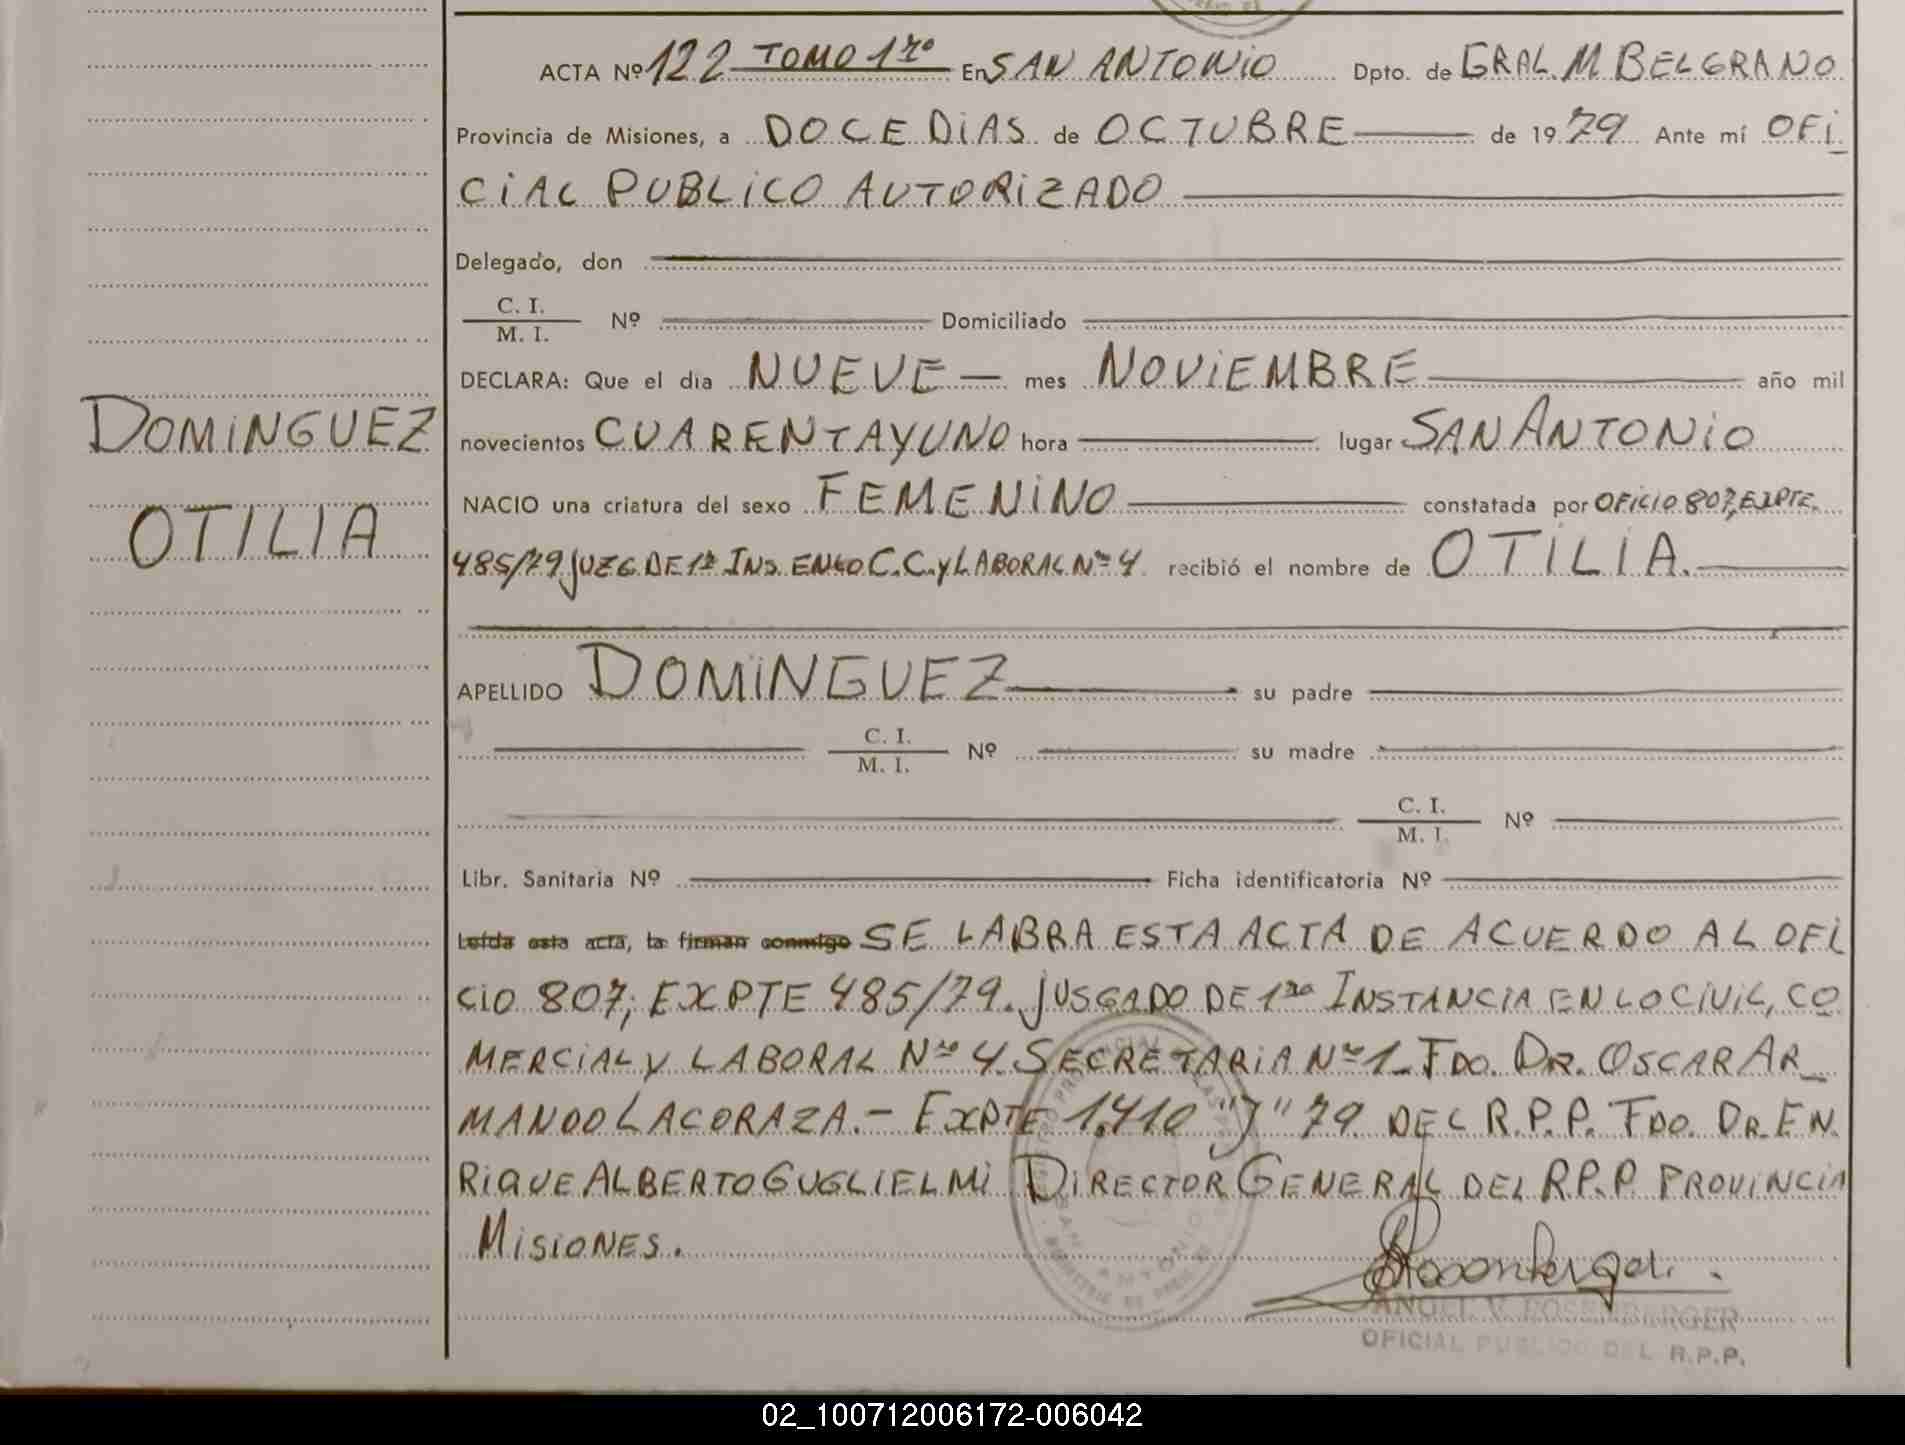 ACTA Nº 122 TOMO 1ro En SAN ANTONIO Dpto. de GRAL. M BELGRANO
Provincia de Misiones, a DOCE DIAS de OCTUBRE de 1979 Ante mí OFI
CIAL PUBLICO AUTORIZADO
Delegado, don
C. I.
M. I. Nº Domiciliado
DECLARA: Que el dia NUEVE mes NOVIEMBRE año mil
DOMINGUEZ
novecientos CUARENTAYUNO hora lugar SAN ANTONIO
NACIO una criatura del sexo FEMENINO constatada por OFICIO 807, EXPTE.
OTILIA
485/79 JUZG. DE 1ra INS. EN LO C.C. y LABORAL Nº 4 recibió el nombre de OTILIA.
APELLIDO DOMINGUEZ su padre
C. I.
M. I. Nº su madre
C. I.
M. I. Nº
Libr. Sanitaria Nº Ficha identificatoria Nº
Leída esta acta, la firman conmigo SE LABRA ESTA ACTA DE ACUERDO AL OFI
CIO 807; EXPTE 485/79. JUSGADO DE 1ra INSTANCIA EN LO CIVIL, CO
MERCIAL y LABORAL Nro 4. SECRETARIA Nro 1_ FDO. DR. OSCAR AR_
MANDO LACORAZA.- EXPTE 1.410 "J" 79 DEL R.P.P. FDO. DR. EN
RIQUE ALBERTO GUGLIELMI DIRECTOR GENERAL DEL R.P.P. PROVINCIA
MISIONES.
ANGEL V. ROSENBERGER
OFICIAL PUBLICO DEL R.P.P.
02_100712006172-006042